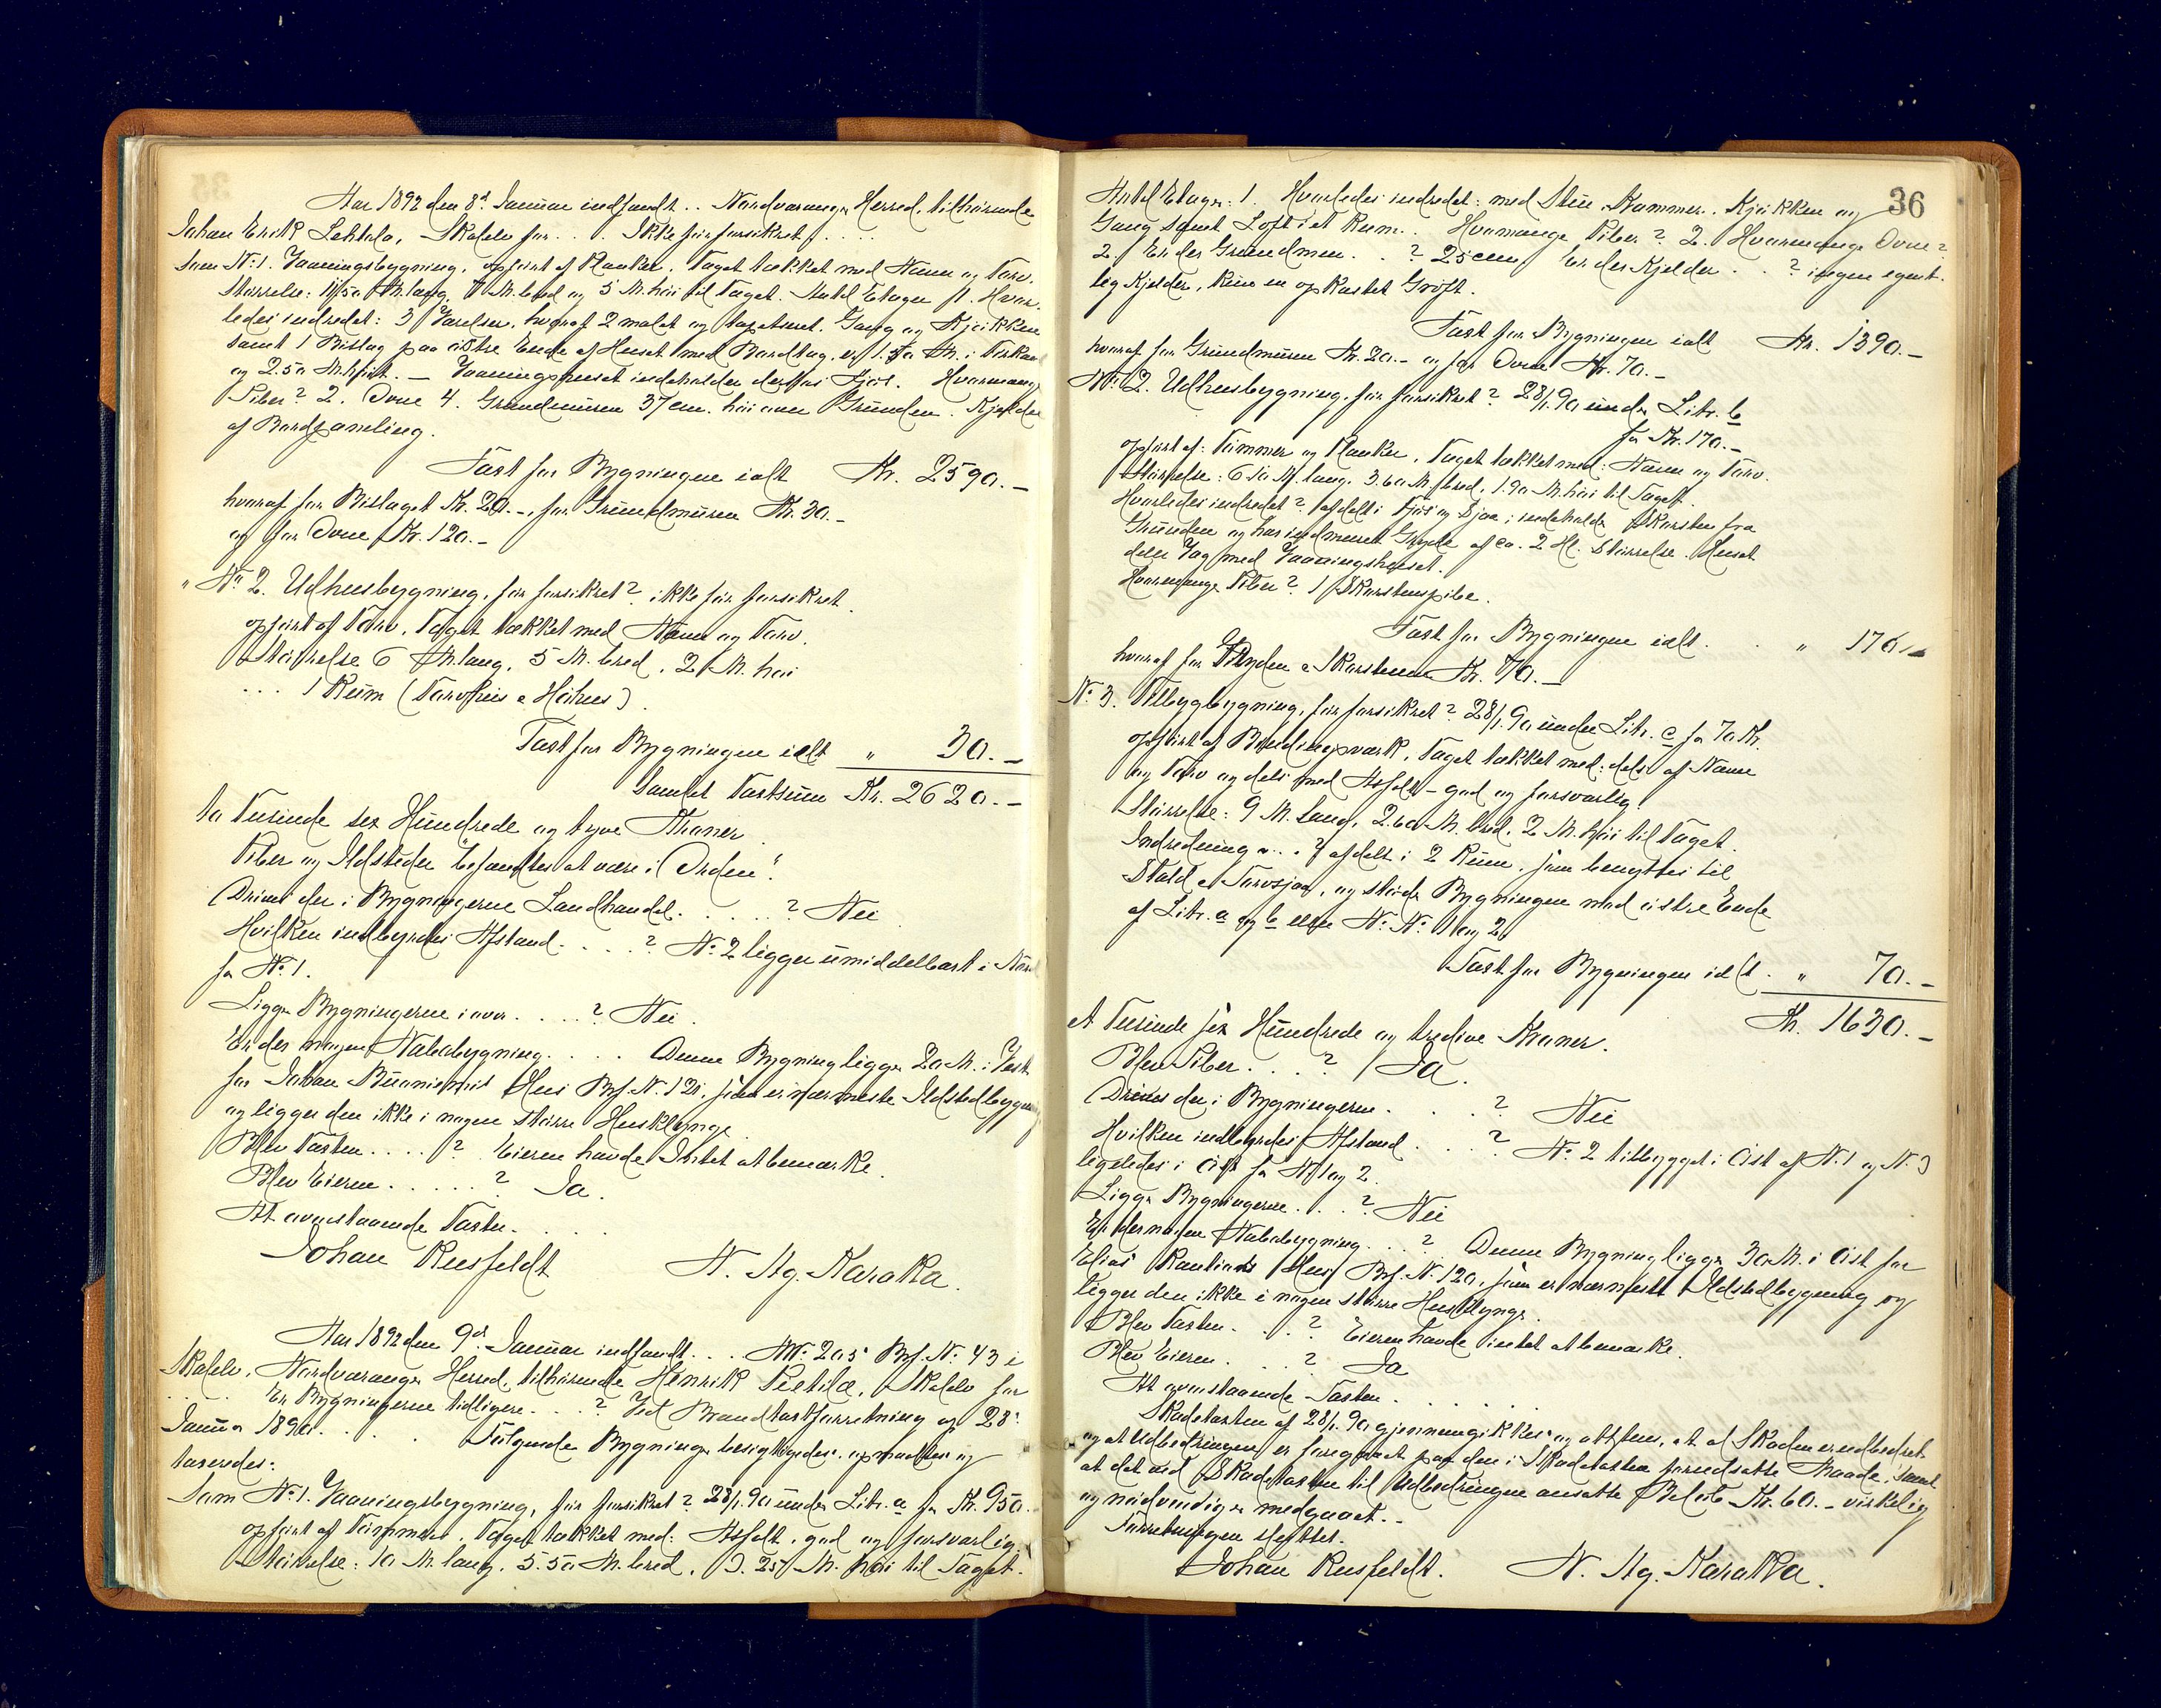 Aar 1892 den 8d. Januar indfandt . . Nordvaranger Herred, tilhørende
Johan Erik Lehtola, Skalelv for . . . Ikke før forsikret . . . .
Som No. 1. Vaaningsbygning, opført af Planker. Taget tækket med Næver og Tørv.
Størrelse: 11,50 M. lang, 7 M. bred og 5 M. høi til Taget. Antal Etager 1. Hvor-
ledes indredet: 3 Værelser, hvoraf 2 malet og tapetseret. Gang og Kjøkken
samt 1 Bislag paa østre Ende af Huset med Bordtag, er 1.50 M. i Firkant
og 2.50 M. høit. — Vaaningshuset indeholder desuden Fjøs. Hvormange
Piber? 2. Ovne 4. Grundmuren 37 cm. høi over Grunden. Kjelder
af Bordpaneling.
Taxt for Bygningen ialt Kr. 2590.—
hvoraf for Bislaget Kr. 20.—, for Grundmuren Kr. 30.—
og for Ovne Kr. 120.—
" No. 2. Udhusbygning, før forsikret? ikke før forsikret.
opført af Tørv. Taget tækket med Næver og Tørv.
Størrelse 6 M. lang, 5 M. bred, 2 M. høi
. . . 1 Rum (Tørvhus & Høhus).
Taxt for Bygningen ialt " 30.—
Samlet Taxtsum Kr. 2620.—
to Tusinde sex Hundrede og tyve Kroner.
Piber og Ildsteder "befandtes at være i Orden".
Drives der i Bygningerne Landhandel. . . . . ? Nei
Hvilken indbyrdes Afstand. . . . ? No. 2 ligger umiddelbart i Nord
for No. 1.
Ligger Bygningerne i over. . . . ? Nei.
Er der nogen Nabobygning. . . . Denne Bygning ligger 20 M. i Vest
for Johan Hus Brf. N. 121, som er nærmeste Ildstedbygning
og ligger den ikke i nogen større Husklynge.
Blev Taxten . . . . ? Eieren havde Intet at bemærke.
Blev Eieren . . . . . ? Ja.
At ovenstaaende Taxter. . . .
Johan Reisfeldt N. Ag. Karaka.
Aar 1892 den 9d. Januar indfandt . . . MN. 205 Brf. No. 43 i
Skalelv, Nordvaranger Herred, tilhørende Henrik Pietilæ, Skalelv for
. . . . . Er Bygningerne tidligere . . . ? Ved Brandtaxtforretning af 28d.
Januar 1890. . . . . Følgende Bygninger besigtigedes, opmaaltes og
taxeredes:
Som No. 1. Vaaningsbygning, før forsikret? 28/1.90 under Litr. a for Kr. 950.
opført af Tømmer. Taget tækket med: Asfalt, god og forsvarlig.
Størrelse: 10 M. lang, 5.50 M. bred, 3.25 M. høi til Taget.
36
Antal Etager: 1. Hvorledes indredet: med Stue, Kammer, Kjøkken og
Gang samt Loft i et Rum. Hvormange Piber? 2. Hvormange Ovne?
2. Er der Grundmur . . ? 25 cm. Er der Kjelder . . ? ingen egent-
lig Kjelder, kun en opkastet Grøft.
Taxt for Bygningen ialt Kr. 1390.—
hvoraf for Grundmuren Kr. 20.— og for Ovne Kr. 70.—
No. 2. Udhusbygning, før forsikret? 28/1.90 under Litr. b
for Kr. 170.—
opført af: Tømmer og Planker. Taget tækket med: Næver og Tørv.
Størrelse: 6.10 M. lang, 3.60 M. bred, 1.90 M. høi til Taget.
Hvorledes indredet? afdelt i Fjøs og Sjaa; indeholder Skorsten fra
Grunden og har indmuret Gryde af ca. 2 Hl. Størrelse. Huset
deler Væg med Vaaningshuset.
Hvormange Piber? 1 Skorstenspibe.
Taxt for Bygningen ialt. . . " 170.—
hvoraf for Gryden & Skorstenen Kr. 70.—
No. 3. Tilbygbygning, før forsikret? 28/1.90 under Litr. c for 70 Kr.
opført af Bindingsværk, Taget tækket med: dels af Næver
og Tørv og dels med Asfalt – god og forsvarlig.
Størrelse: 9 M. lang, 2.60 M. bred, 2 M. høi til Taget.
Indredning . . . ? afdelt i 2 Rum, som benyttes til
Stald & Tørvsjaa, og støder Bygningen mod østre Ende
af Litr. a og b eller No. No. 1 og 2.
Taxt for Bygningen ialt . " 70.—
Kr. 1630.—
et Tusinde sex Hundrede og tredive Kroner.
Blev Piber. . . . ? Ja.
Drives der i Bygningerne. . . . ? Nei
Hvilken indbyrdes Afstand . . . ? No. 2 tilbygget i Øst af N. 1 og N. 3
ligeledes i Øst for N. 1 og 2.
Ligger Bygningerne. . . ? Nei
Er der nogen Nabobygning. . . ? Denne Bygning ligger 30 M. i Øst for
Elias Hus Brf. N. 120, som er nærmeste Ildstedbygning og
ligger den ikke i nogen større Husklynge.
Blev Taxten. . . . ? Eieren havde intet at bemærke.
Blev Eieren . . . ? Ja
At ovenstaaende Taxter. . . . .
Skadetaxten af 28/1.90 gjennemgikkes og attesteres, at al Skaden er udbedret
og at Udbedringen er foregaaet paa den i Skadetaxten forudsatte Maade, samt
at det ved Skadetaxten til Udbedringen ansatte Beløb Kr. 60.— virkelig
og nødvendigen medgaaet. –
Forretningen sluttet.
Johan Reisfeldt. N. Ag. Karaka.